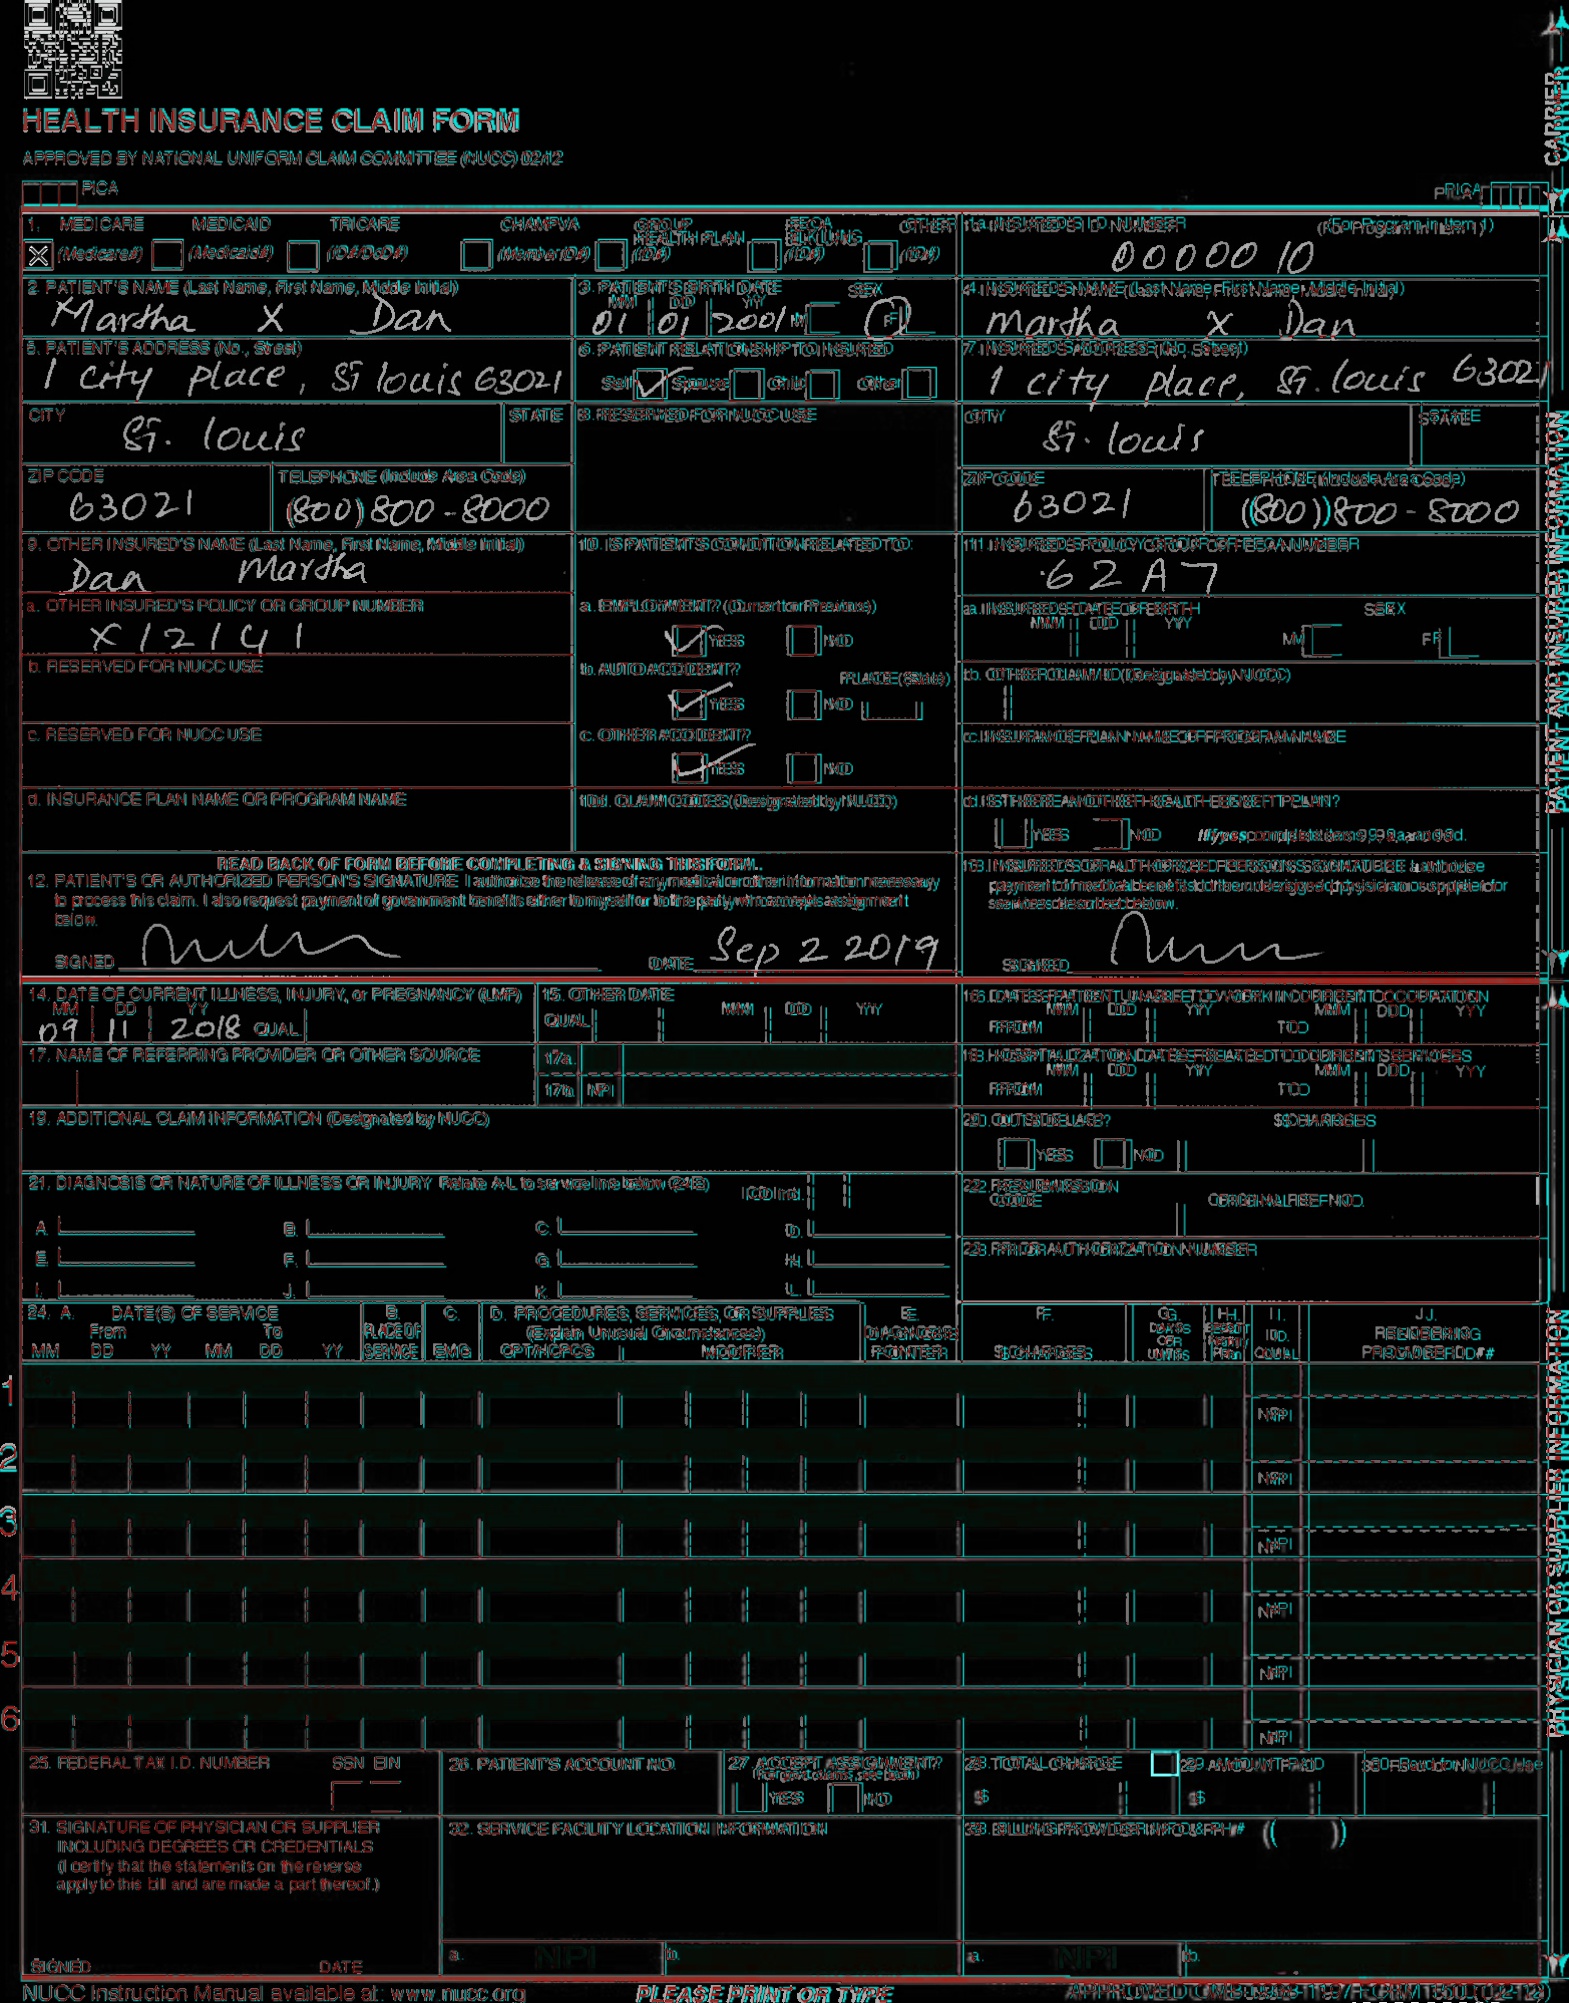 HEALTH INSURANCE CLAIM FORM
APPROVED BY NATIONAL UNIFORM CLAIM COMMITTEE (NUCC) 02/12
PICA PICA
CARRIER
1. MEDICARE MEDICAID TRICARE CHAMPVA GROUP HEALTH PLAN FECA BLK LUNG OTHER
(Medicare#) (Medicaid#) (ID#/DoD#) (Member ID#) (ID#) (ID#) (ID#)
1a. INSURED'S I.D. NUMBER (For Program in Item 1)
0000010
2. PATIENT'S NAME (Last Name, First Name, Middle Initial)
Martha X Dan
3. PATIENT'S BIRTH DATE SEX
MM DD YY
01 01 2001 M F
4. INSURED'S NAME (Last Name, First Name, Middle Initial)
Martha X Dan
5. PATIENT'S ADDRESS (No., Street)
1 city place, St louis 63021
6. PATIENT RELATIONSHIP TO INSURED
Self Spouse Child Other
7. INSURED'S ADDRESS (No., Street)
1 city place, St. louis 63021
CITY STATE
St. louis
8. RESERVED FOR NUCC USE
CITY STATE
St. louis
ZIP CODE TELEPHONE (Include Area Code)
63021 (800) 800-8000
ZIP CODE TELEPHONE (Include Area Code)
63021 (800) 800-8000
9. OTHER INSURED'S NAME (Last Name, First Name, Middle Initial)
Dan Martha
a. OTHER INSURED'S POLICY OR GROUP NUMBER
X12141
b. RESERVED FOR NUCC USE
c. RESERVED FOR NUCC USE
d. INSURANCE PLAN NAME OR PROGRAM NAME
10. IS PATIENT'S CONDITION RELATED TO:
a. EMPLOYMENT? (Current or Previous)
YES NO
b. AUTO ACCIDENT? PLACE (State)
YES NO
c. OTHER ACCIDENT?
YES NO
10d. CLAIM CODES (Designated by NUCC)
11. INSURED'S POLICY GROUP OR FECA NUMBER
62A7
a. INSURED'S DATE OF BIRTH SEX
MM DD YY M F
b. OTHER CLAIM ID (Designated by NUCC)
c. INSURANCE PLAN NAME OR PROGRAM NAME
d. IS THERE ANOTHER HEALTH BENEFIT PLAN?
YES NO If yes, complete items 9, 9a, and 9d.
READ BACK OF FORM BEFORE COMPLETING & SIGNING THIS FORM.
12. PATIENT'S OR AUTHORIZED PERSON'S SIGNATURE I authorize the release of any medical or other information necessary
to process this claim. I also request payment of government benefits either to myself or to the party who accepts assignment
below.
SIGNED DATE Sep 2 2019
13. INSURED'S OR AUTHORIZED PERSON'S SIGNATURE I authorize
payment of medical benefits to the undersigned physician or supplier for
services described below.
SIGNED
PATIENT AND INSURED INFORMATION
14. DATE OF CURRENT ILLNESS, INJURY, or PREGNANCY (LMP)
MM DD YY
09 11 2018 QUAL.
15. OTHER DATE
QUAL. MM DD YY
16. DATES PATIENT UNABLE TO WORK IN CURRENT OCCUPATION
MM DD YY MM DD YY
FROM TO
17. NAME OF REFERRING PROVIDER OR OTHER SOURCE
17a.
17b. NPI
18. HOSPITALIZATION DATES RELATED TO CURRENT SERVICES
MM DD YY MM DD YY
FROM TO
19. ADDITIONAL CLAIM INFORMATION (Designated by NUCC)
20. OUTSIDE LAB? $ CHARGES
YES NO
21. DIAGNOSIS OR NATURE OF ILLNESS OR INJURY Relate A-L to service line below (24E) ICD Ind.
A. B. C. D.
E. F. G. H.
I. J. K. L.
22. RESUBMISSION CODE ORIGINAL REF. NO.
23. PRIOR AUTHORIZATION NUMBER
24. A. DATE(S) OF SERVICE
From To
MM DD YY MM DD YY
B. PLACE OF SERVICE
C. EMG
D. PROCEDURES, SERVICES, OR SUPPLIES
(Explain Unusual Circumstances)
CPT/HCPCS MODIFIER
E. DIAGNOSIS POINTER
F. $ CHARGES
G. DAYS OR UNITS
H. EPSDT Family Plan
I. ID. QUAL.
J. RENDERING PROVIDER ID. #
1 NPI
2 NPI
3 NPI
4 NPI
5 NPI
6 NPI
PHYSICIAN OR SUPPLIER INFORMATION
25. FEDERAL TAX I.D. NUMBER SSN EIN
26. PATIENT'S ACCOUNT NO.
27. ACCEPT ASSIGNMENT?
(For govt. claims, see back)
YES NO
28. TOTAL CHARGE
$
29. AMOUNT PAID
$
30. Rsvd for NUCC Use
31. SIGNATURE OF PHYSICIAN OR SUPPLIER
INCLUDING DEGREES OR CREDENTIALS
(I certify that the statements on the reverse
apply to this bill and are made a part thereof.)
SIGNED DATE
32. SERVICE FACILITY LOCATION INFORMATION
a. NPI b.
33. BILLING PROVIDER INFO & PH # ( )
a. NPI b.
NUCC Instruction Manual available at: www.nucc.org
PLEASE PRINT OR TYPE
APPROVED OMB-0938-1197 FORM 1500 (02-12)